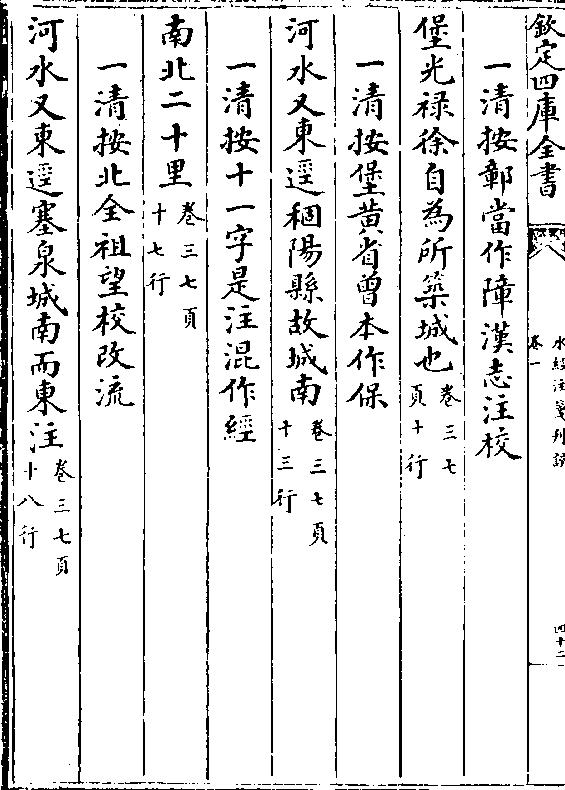 欽定四庫全書
水經注箋刊誤
卷一
四十二
一清按鄣當作障漢志注校
堡光禄徐自為所築城也卷三七頁十行
一清按堡黃省曾本作保
河水又東逕稒陽縣故城南卷三七頁十三行
一清按十一字是注混作經
南北二十里卷三七頁十七行
一清按北全祖望校改流
河水又東逕塞泉城南而東注卷三七頁十八行